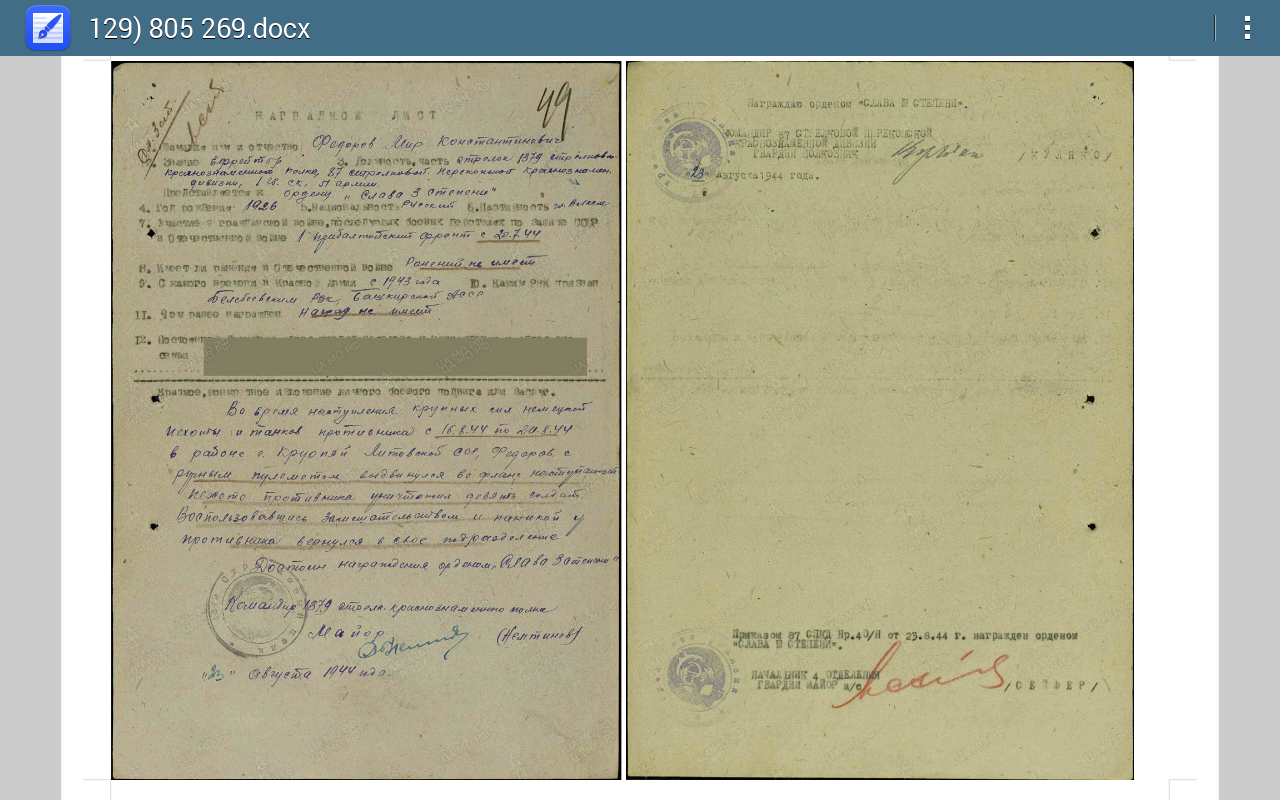 129) 805 269.docx
49
НАГРАДНОЙ ЛИСТ
Фамилия имя и отчество: Федоров Мир Константинович
Звание Ефрейтор 3. Должность, часть стрелок 1379 стрелкового
Краснознаменного полка, 87 стрелковой Перекопской Краснознамен.
дивизии, 1 Гв. ск, 51 армии.
Представляется к ордену "Слава 3 степени"
4. Год рождения 1926 5. Национальность Русский 6. Партийность чл. Влксм
7. Участие в гражданской войне, последующих боевых действиях по защите СССР
в Отечественной войне 1 Прибалтийский фронт с 20.7.44
8. Имеет ли ранения в Отечественной войне Ранений не имеет
9. С какого времени в Красной Армии с 1943 года 10. Каким РВК призван
Белебеевским Рвк, Башкирской АССР
11. Чем ранее награжден Наград не имеет
12.
семьи
Краткое, конкретное изложение личного боевого подвига или заслуг.
Во время наступления крупных сил немецкой
пехоты и танков противника с 16.8.44 по 20.8.44
в районе с. Литовской ССР, Федоров, с
ручным пулеметом выдвинулся во фланг наступающей
пехоте противника уничтожил девять солдат.
Воспользовавшись замешательством и паникой у
противника вернулся в свое подразделение
Достоин награждения орденом "Слава 3 степени"
Командир 1379 стрелк. краснознаменного полка
Майор (Немтинов)
"23" Августа 1944 года.
Награждаю орденом "СЛАВА Ш СТЕПЕНИ".
КОМАНДИР 87 СТРЕЛКОВОЙ ПЕРЕКОПСКОЙ
КРАСНОЗНАМЕННОЙ ДИВИЗИИ
ГВАРДИИ ПОЛКОВНИК /КУЛИКО/
"23" Августа 1944 года.
Приказом 87 СПКД Нр.40/Н от 25.8.44 г. награжден орденом
"СЛАВА Ш СТЕПЕНИ".
НАЧАЛЬНИК 4 ОТДЕЛЕНИЯ
ГВАРДИИ МАЙОР а/с /СЕЙФЕР/